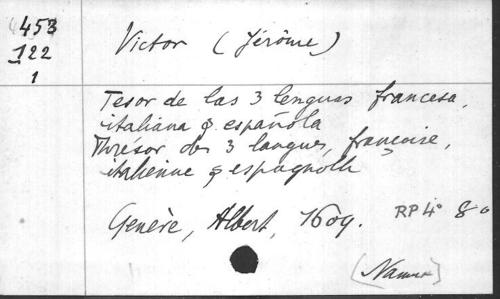 453
122
1
Victor (Jérôme)
Tesor de las 3 lenguas francesa,
italiana & española
Thrésor des 3 langues, françoise,
italienne & espagnolle
Genève, Albert, 1609. RP 4° 8°
(Namur)